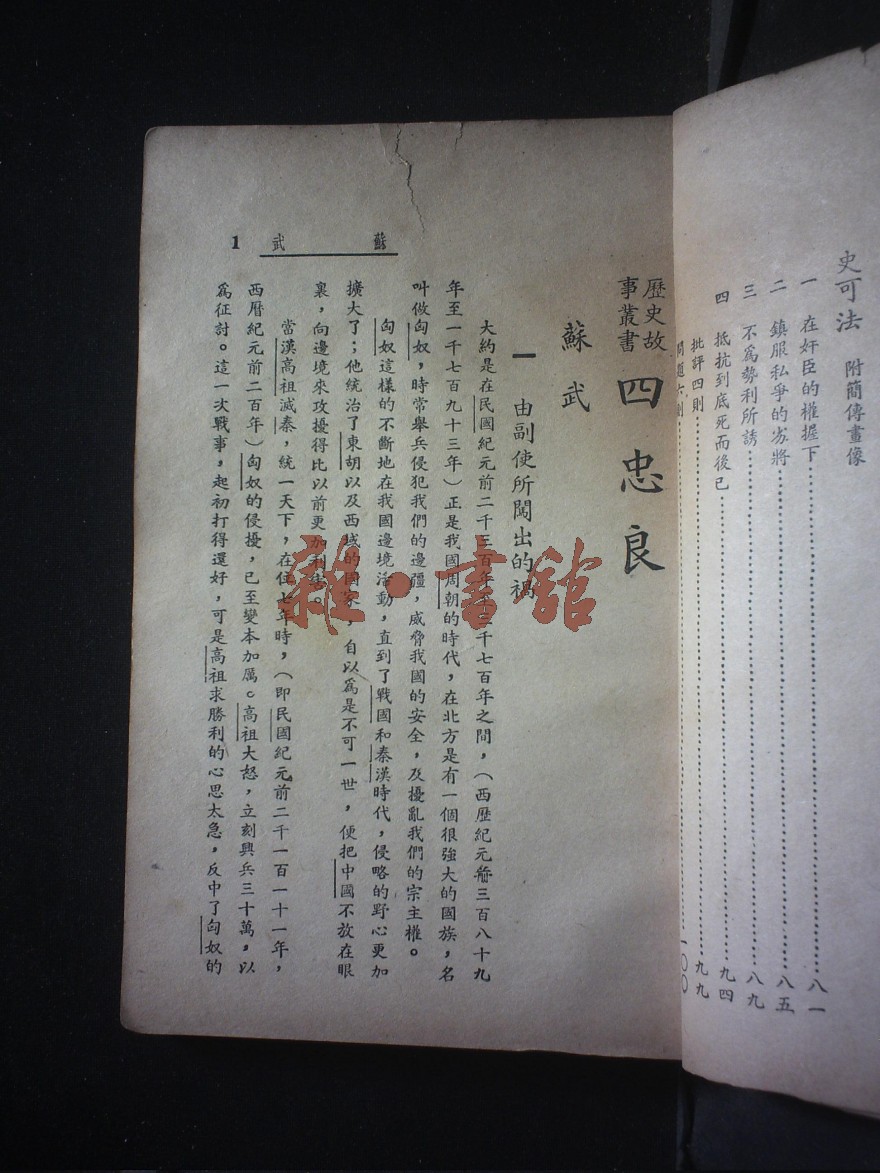 史可法 附簡傳畫像
一 在奸臣的權握下 八一
二 鎮服私爭的劣將 八五
三 不爲勢利所誘 八九
四 抵抗到底死而後已 九四
批評四則 九九
問題六則 一〇〇
歷史故事叢書 四忠良
蘇武
一 由副使所闖出的禍
大約是在民國紀元前二千三百年至二千七百年之間，（西歷紀元前三百八十九
年至一千七百九十三年）正是我國周朝的時代，在北方是有一個很強大的國族，名
叫做匈奴，時常舉兵侵犯我們的邊疆，威脅我國的安全，及擾亂我們的宗主權。
匈奴這樣的不斷地在我國邊境活動，直到了戰國和秦漢時代，侵略的野心更加
擴大了；他統治了東胡以及西域的國家，自以爲是不可一世，便把中國不放在眼
裏，向邊境來攻擾得比以前更加利害。
當漢高祖滅秦，統一天下，在位七年時，（即民國紀元前二千一百一十一年，
西曆紀元前二百年）匈奴的侵擾，已至變本加厲。高祖大怒，立刻興兵三十萬，以
爲征討。這一次戰事，起初打得還好，可是高祖求勝利的心思太急，反中了匈奴的
蘇武 1
雜·書館